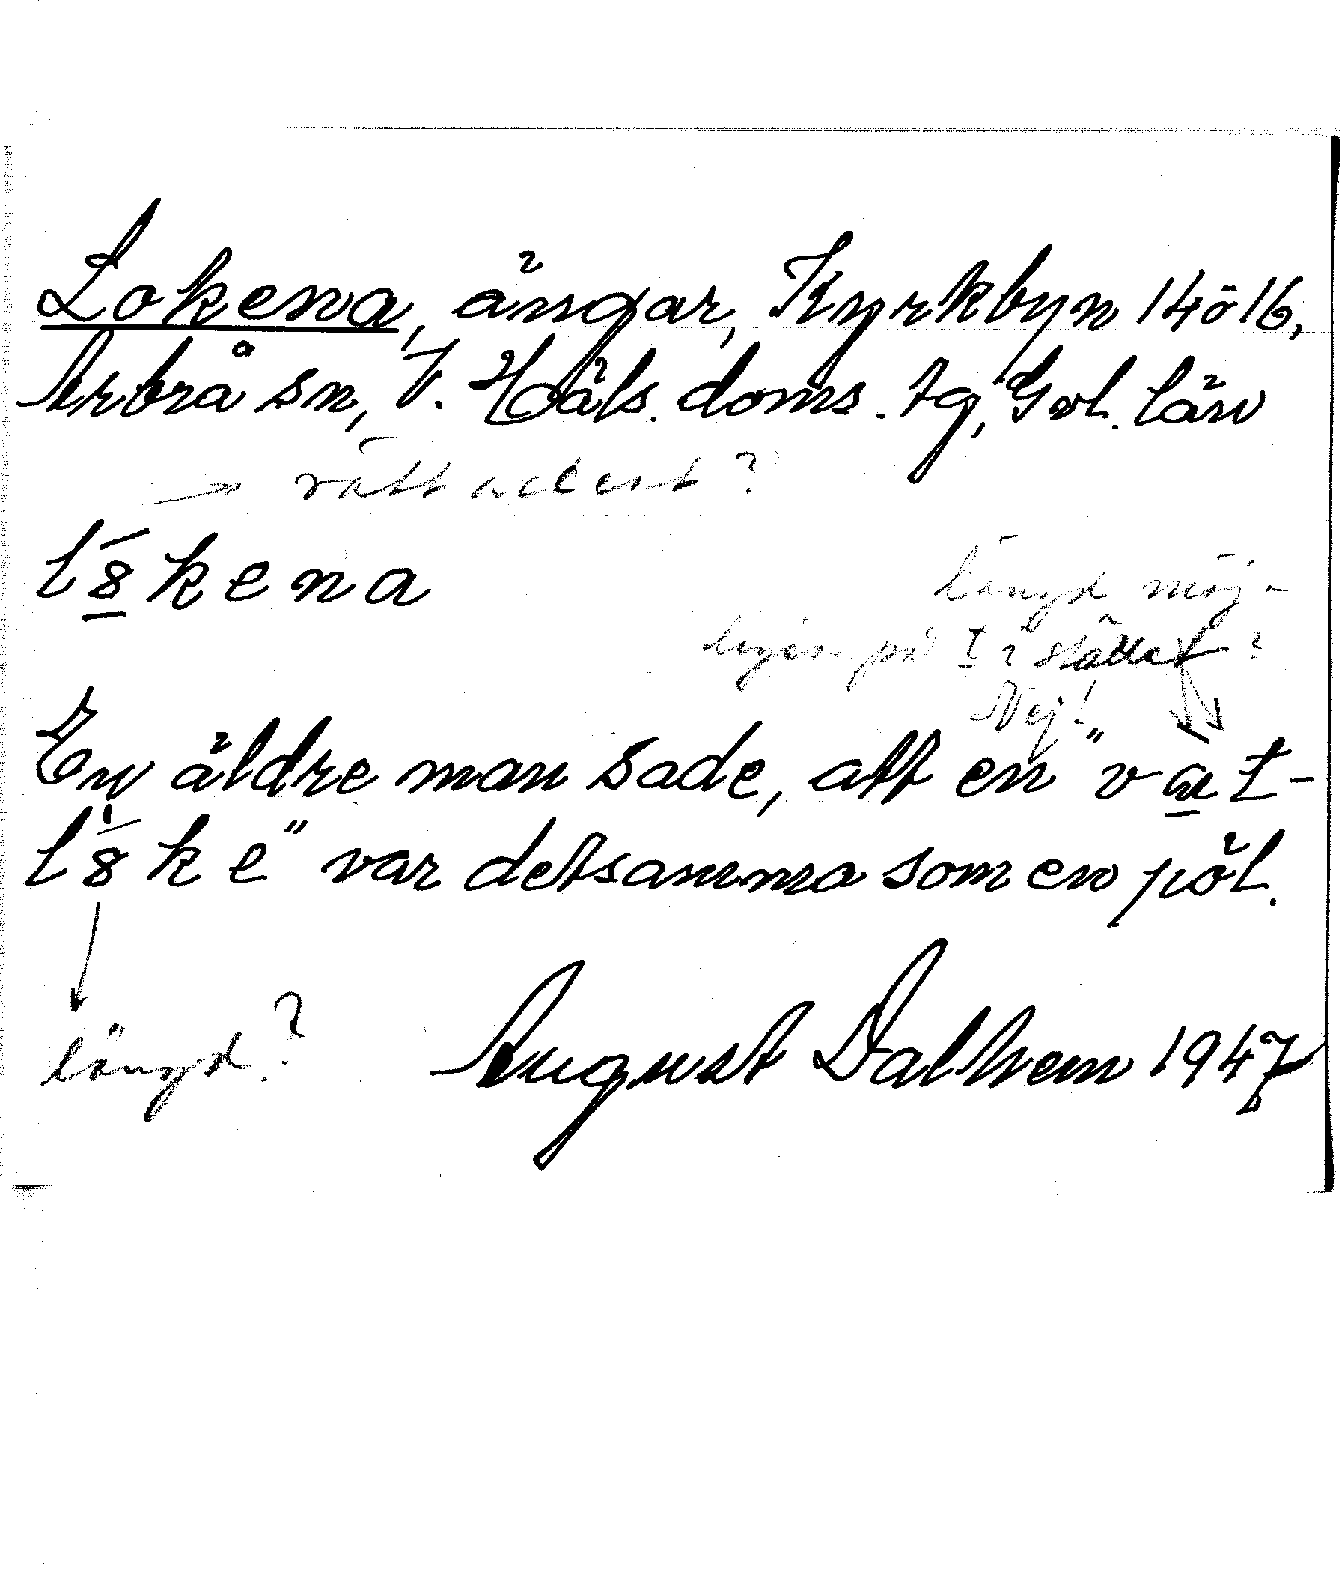 Lokena, ängar, Kyrkbyn 14 o 16,
Arbrå sn, V. Häls. doms. tg, Gvl. län
→ rätt accent?
l8́kena
längd möj-
ligen på t i stället?
Nej!
En äldre man sade, att en "vat-
l8̀ke" var detsamma som en pöl.
längd?
August Dalhem 1947